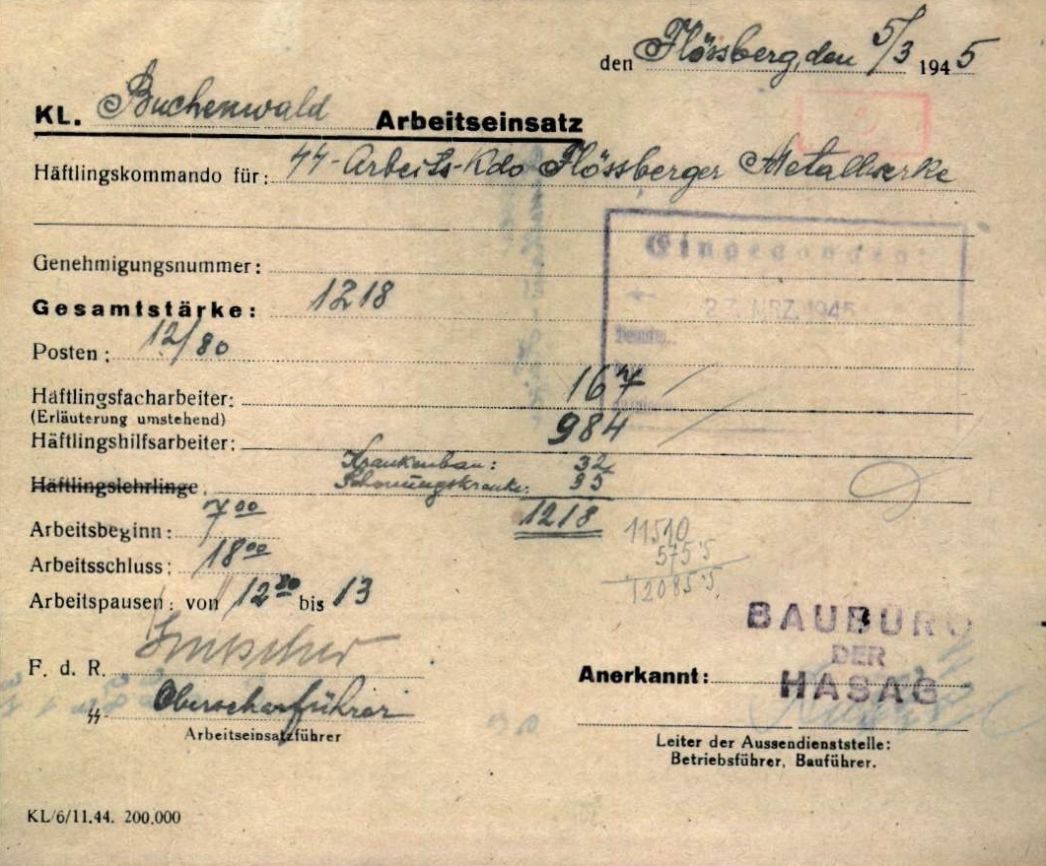 den Flössberg, den 5/3 1945
KL. Buchenwald Arbeitseinsatz
Häftlingskommando für: SS-Arbeits-Kdo Flössberger Metallwerke
Eingegangen:
27. MRZ. 1945
Genehmigungsnummer:
Gesamtstärke: 1218
Posten: 12/80
Häftlingsfacharbeiter: 167
(Erläuterung umstehend)
Häftlingshilfsarbeiter: 984
Krankenbau: 32
Häftlingslehrlinge, Schonungskranke: 35
1218
Arbeitsbeginn: 7 00
11510
575 5
Arbeitsschluss: 18 00
12085 5
Arbeitspausen: von 12 30 bis 13
BAUBÜRO
DER
HASAG
F. d. R.
Anerkannt:
SS- Oberscharführer
Arbeitseinsatzführer
Leiter der Aussendienststelle:
Betriebsführer, Bauführer.
KL/6/11.44. 200.000